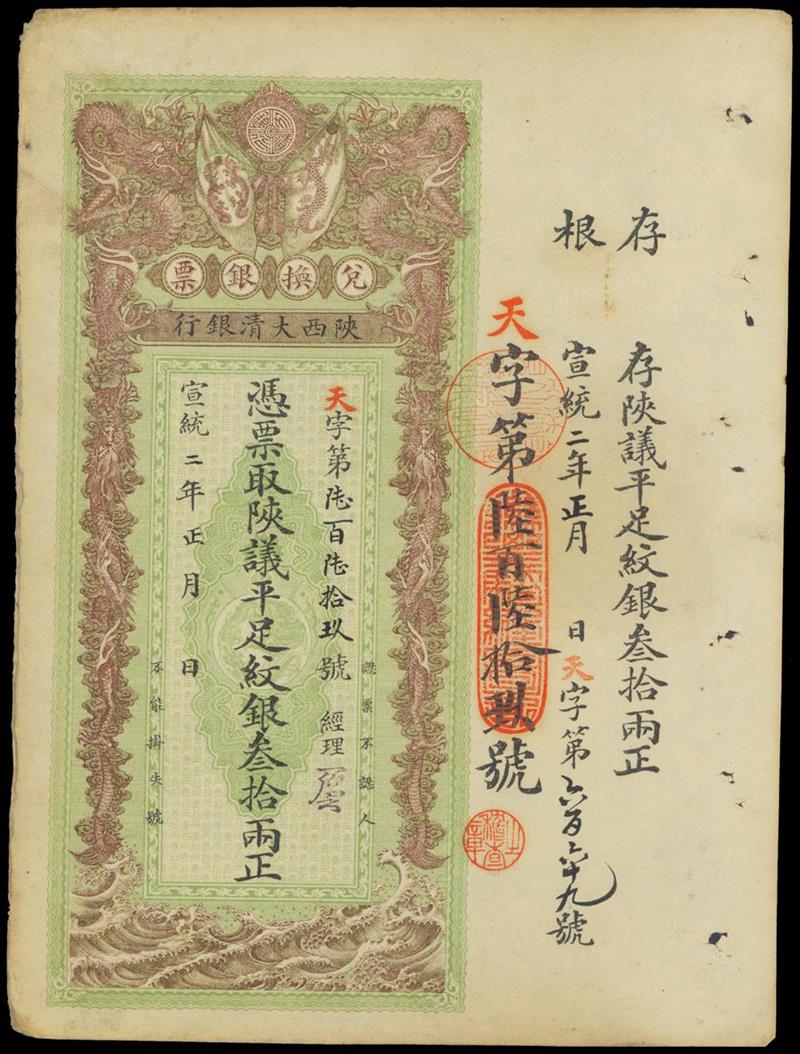 存根
存陝議平足紋銀叁拾兩正
宣統二年正月 日天字第六百六十九號
天字第陸百陸拾玖號
兌換銀票
陝西大清銀行
認票不認人
天字第陸百陸拾玖號 經理
憑票取陝議平足紋銀叁拾兩正
宣統二年正月 日
不能掛失號